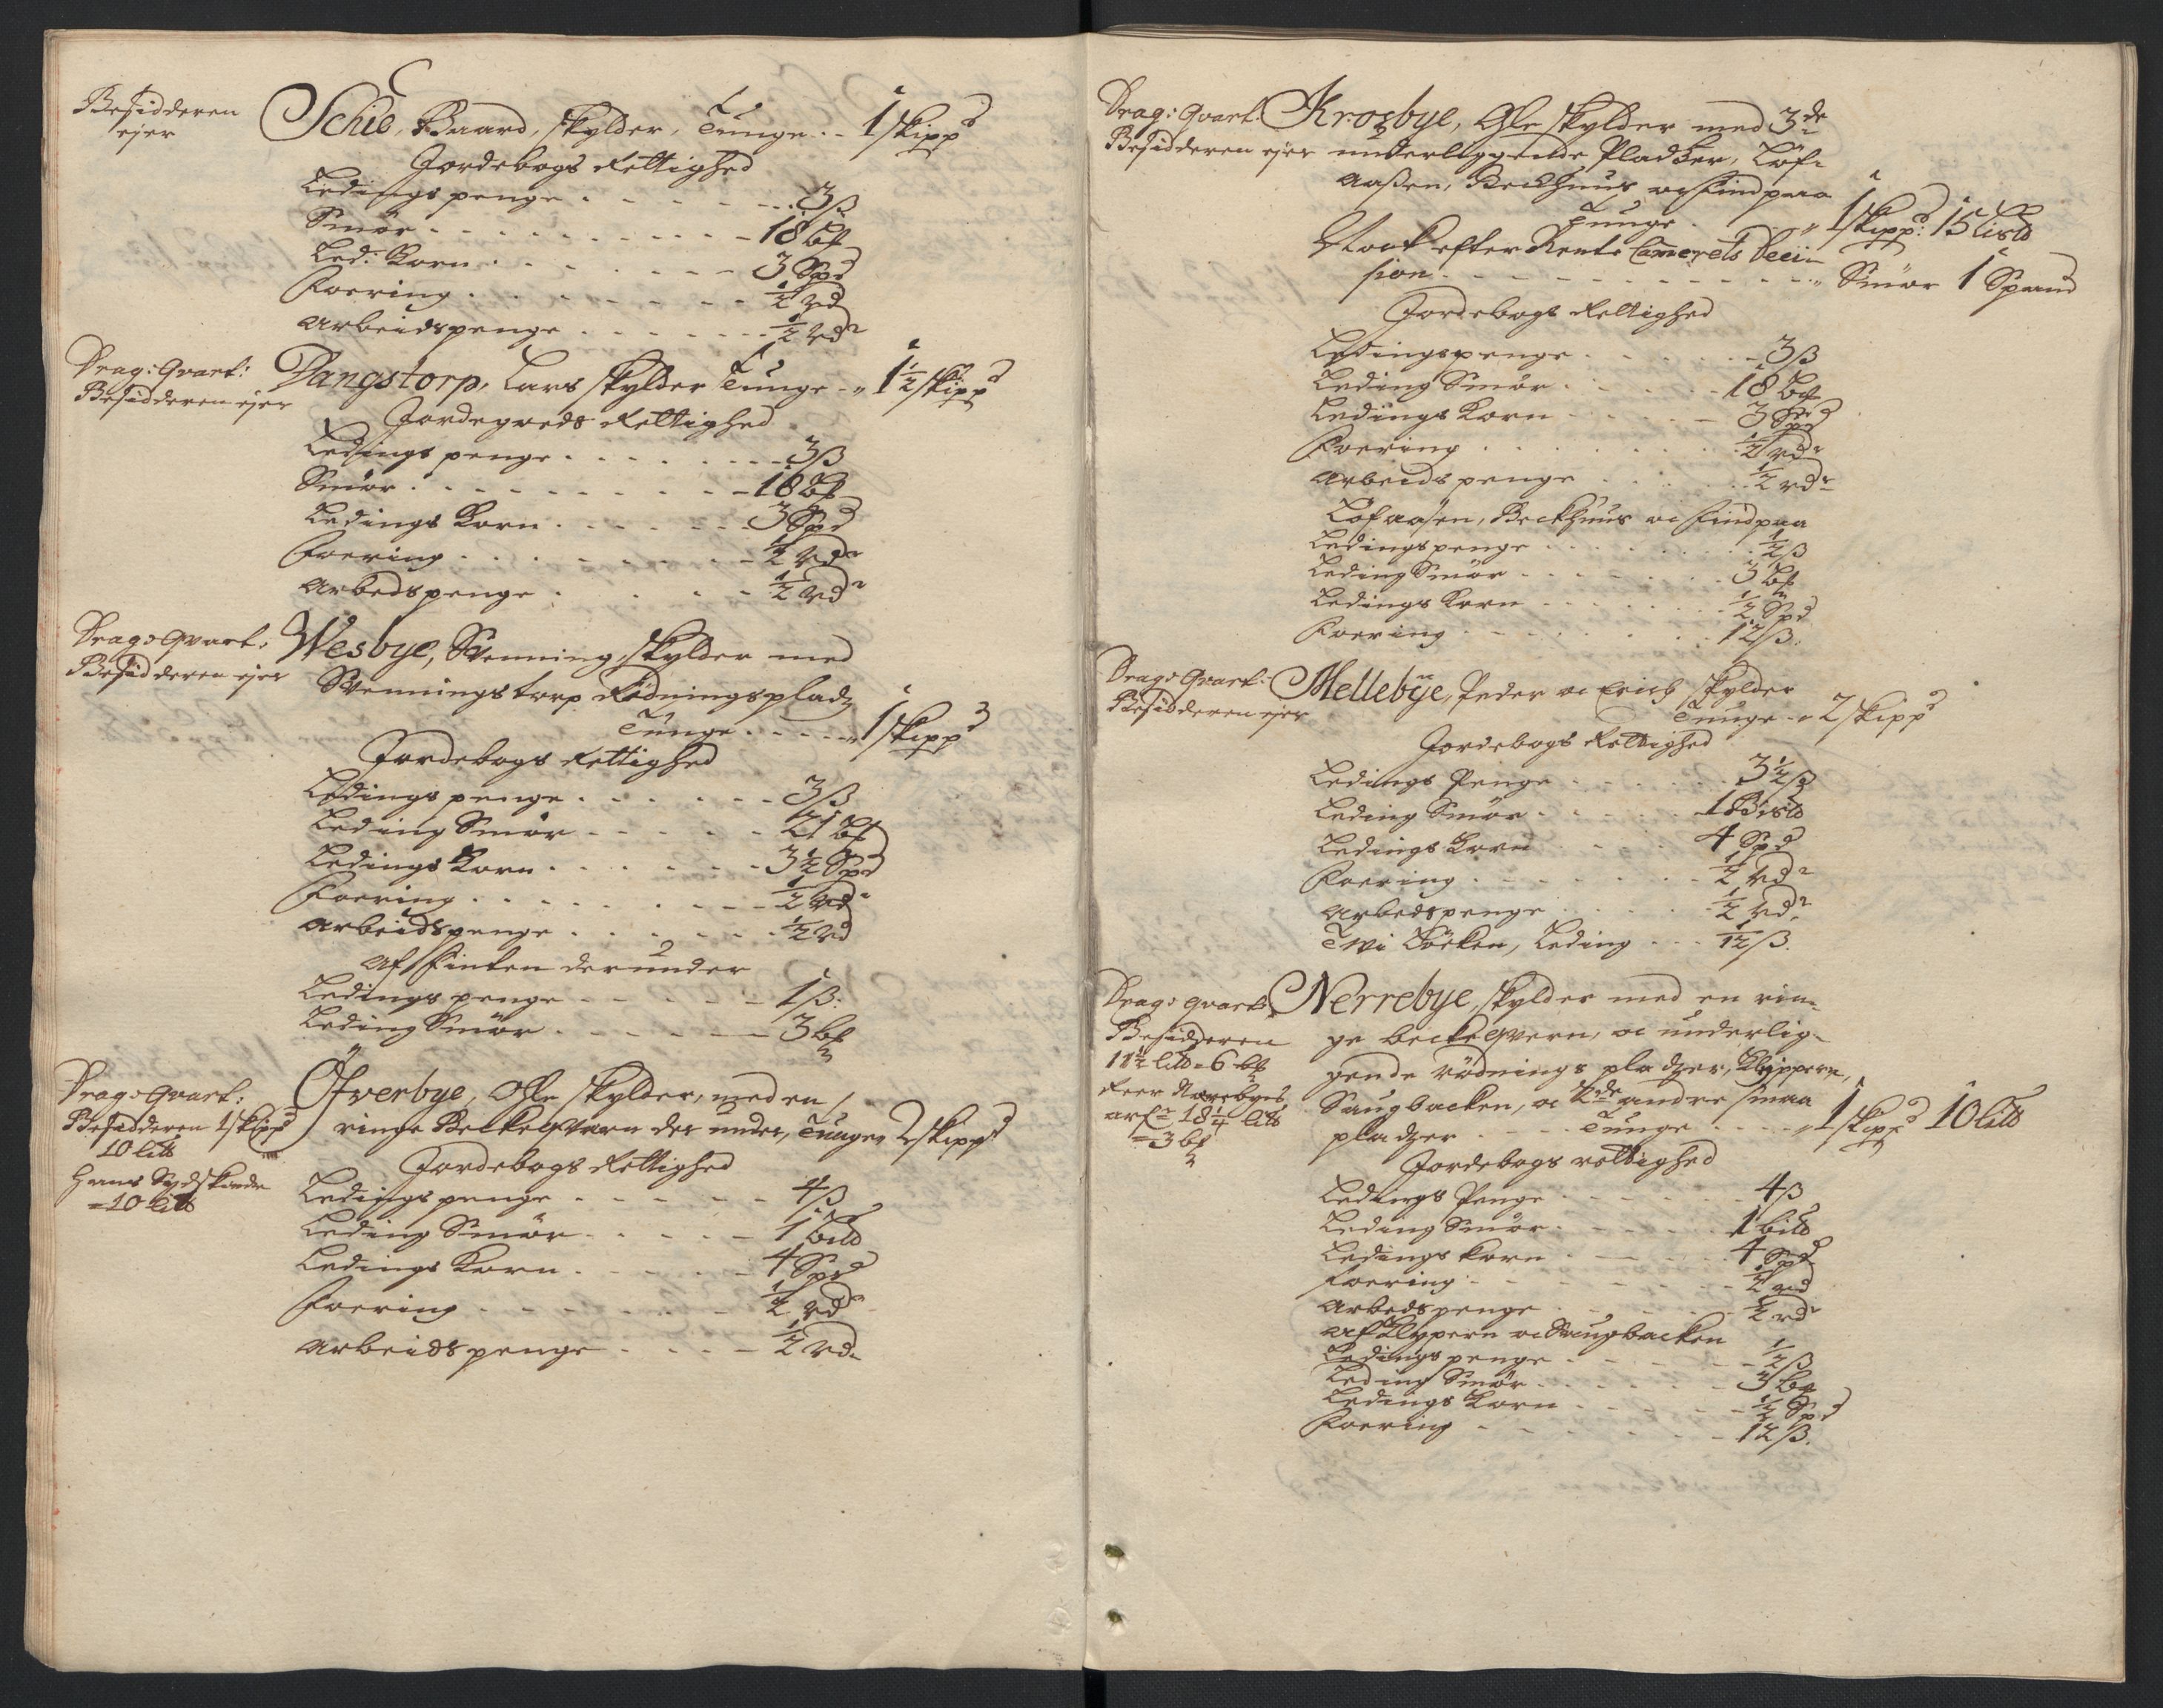 Besidderen
ejer
Schie, Baard, skylder, Tunge .. 1 skippd
Jordebogs Rettighed
Ledingspenge . . . 3 ß
Smör . . . 18 bp
Led: Korn . . . 3 Spd
Foering . . . ½ rd
Arbeidspenge . . . ½ rdr
Drag: Qvart:
Besidderen ejer
Vangstorp, Lars skylder Tunge - 1½ skippd
Jordegreds Rettighed
Ledings penge . . . 3 ß
Smör . . . 18 bp
Ledings Korn . . . 3 Spd
Foering . . . ½ rdr
Arbedspenge . . . ½ rdr
Drag: Qvart:
Besidderen ejer
Wesbye, Svenning, skylder med
Svenningstorp Rödningspladz
Tunge . . . 1 skippd
Jordebogs Rettighed
Ledings penge . . . 3 ß
Leding Smör . . . 21 bp
Ledings Korn . . . 3½ Spd
Foering . . . ½ rdr
Arbeidspenge . . . ½ rd
Af Finken derunder
Ledings penge . . . 1 ß:
Leding Smör . . . 3 bp
Drag: Qvart:
Besidderen 1 skippd
10 lit
Hans
= 10 lit
Öfverbye, Ole skylder, med en
ringe Beckeqvarn der under, Tunge 2 skippd
Jordebogs Rettighed
Ledings penge . . . 4 ß
Leding Smör . . . 1 bild
Ledings Korn . . . 4 Spd
Foering . . . ½ rdr
Arbeidspenge . . . ½ rdr
Drag: Qvart:
Besidderen ejer
Krogbye, Ole skylder med 3de
underliggende Pladser, Löf-
aasen, Beckhuus oc Findpaa
Tunge . . . 1 skippd: 15 lisld
Noch efter Rente Camerets Deci-
sion . . . Smör 1 Spand
Jordebogs Rettighed
Ledingspenge . . . 3 ß
Leding Smör . . . 18 bp
Ledings Korn . . . 3 Spd
Foering . . . ½ rdr
Arbeids penge . . . ½ rdr
Löfaasen, Beckhuus oc Findpaa
Ledingspenge . . . ½ ß
Leding Smör . . . 3 bp
Ledings Korn . . . ½ Spd
Foering . . . 12 ß:
Drag: Qvart:
Besidderen ejer
Mellebye, Peder oc Erich skylder
Tunge - 2 skippd
Jordebogs Rettighed
Ledings Penge . . . 3½ ß
Leding Smör . . . 1 Bisld
Ledings Korn . . . 4 Spd
Foering . . . ½ rdr
Arbedspenge . . . ½ rdr
Leding . . . ß.
Drag: Qvart:
Besidderen
11½ lild = 6 bp
Peer Norebyes
arf: 18¼ lit
= 3 bp
Nerrebye, skylder med en rin-
ge beckeqvern, oc underlig-
gende rödnings pladzer, Klyppern,
Saugbacken, oc 2de andre smaa
pladzer . . . Tunge . . . 1 skippd 10 lild
Jordebogs rettighed
Ledings Penge . . . 4 ß
Leding Smör . . . 1 bild
Ledings korn . . . 4 Spd
Foering . . . ½ rd
Arbedspenge . . . ½ rdr
Af Klypern oc Saugbacken
Ledings penge . . . ½ ß
Leding Smör . . . 3 bp
Ledings Korn . . . ½ Spd
Foering . . . 12 ß.